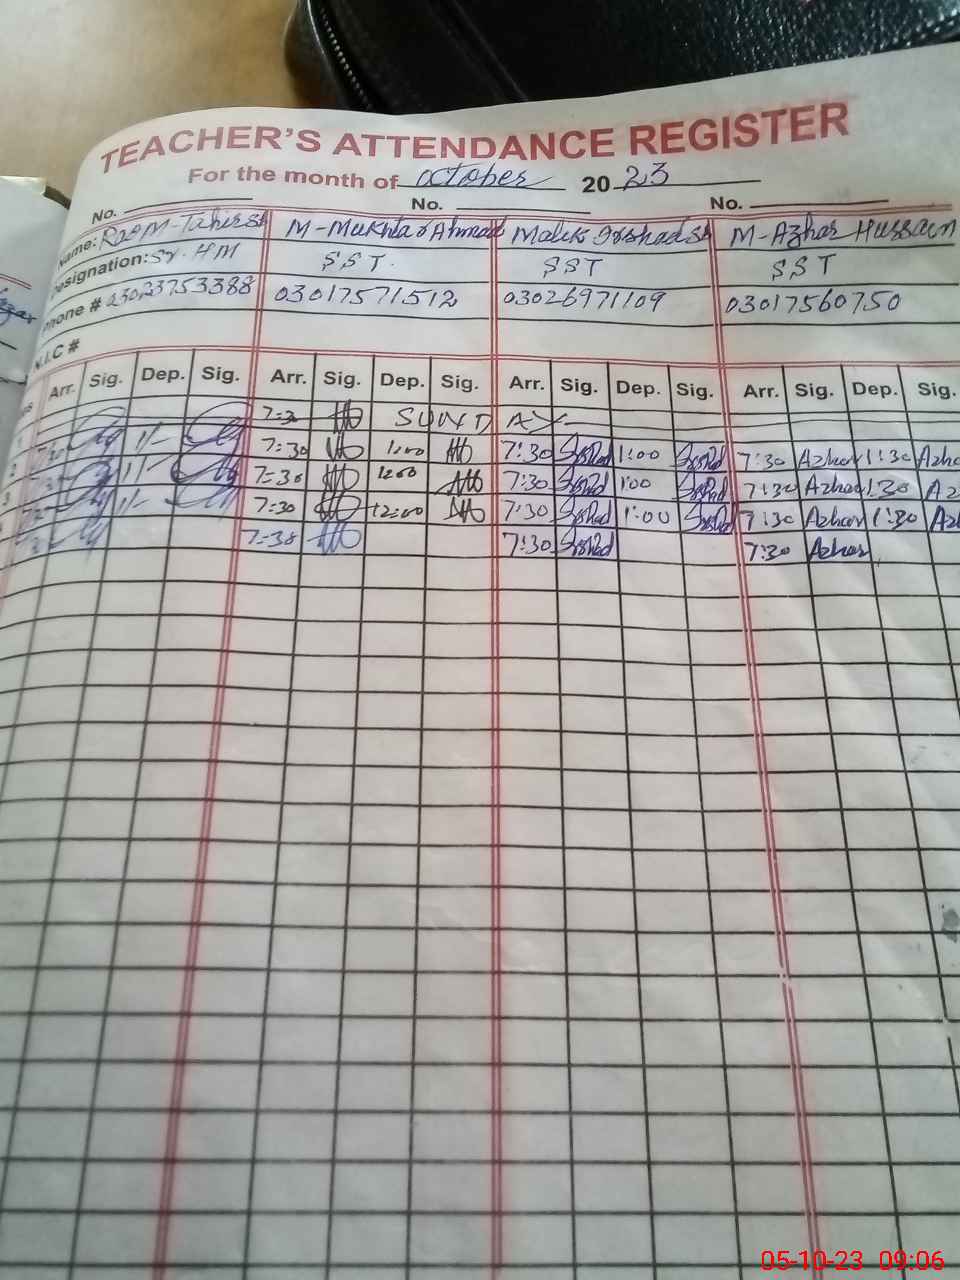 TEACHER'S ATTENDANCE REGISTER
For the month of october 2023
No. No. No.
Name: Rao M-Tahir M-Mukhtar Ahmad Malik Irshad M-Azhar Hussain
Designation: Sr. HM SST. SST SST
Phone # 03023753388 03017571512 03026971109 03017560750
N.I.C #
Arr. Sig. Dep. Sig. Arr. Sig. Dep. Sig. Arr. Sig. Dep. Sig. Arr. Sig. Dep. Sig.
7=3 SUNDAY-
7:30 1/- 7=30 1:00 7:30 Irshad 1:00 Irshad 7:30 Azhar 1:30 Azha
1/- 7=30 1200 7:30 Irshad 1:00 Irshad 7:30 Azhar 1:30 Az
1/- 7=30 12:00 7:30 Irshad 1:00 Irshad 7:30 Azhar 1:30 Az
7=30 7:30 Irshad 7:30 Azhar
05-10-23 09:06